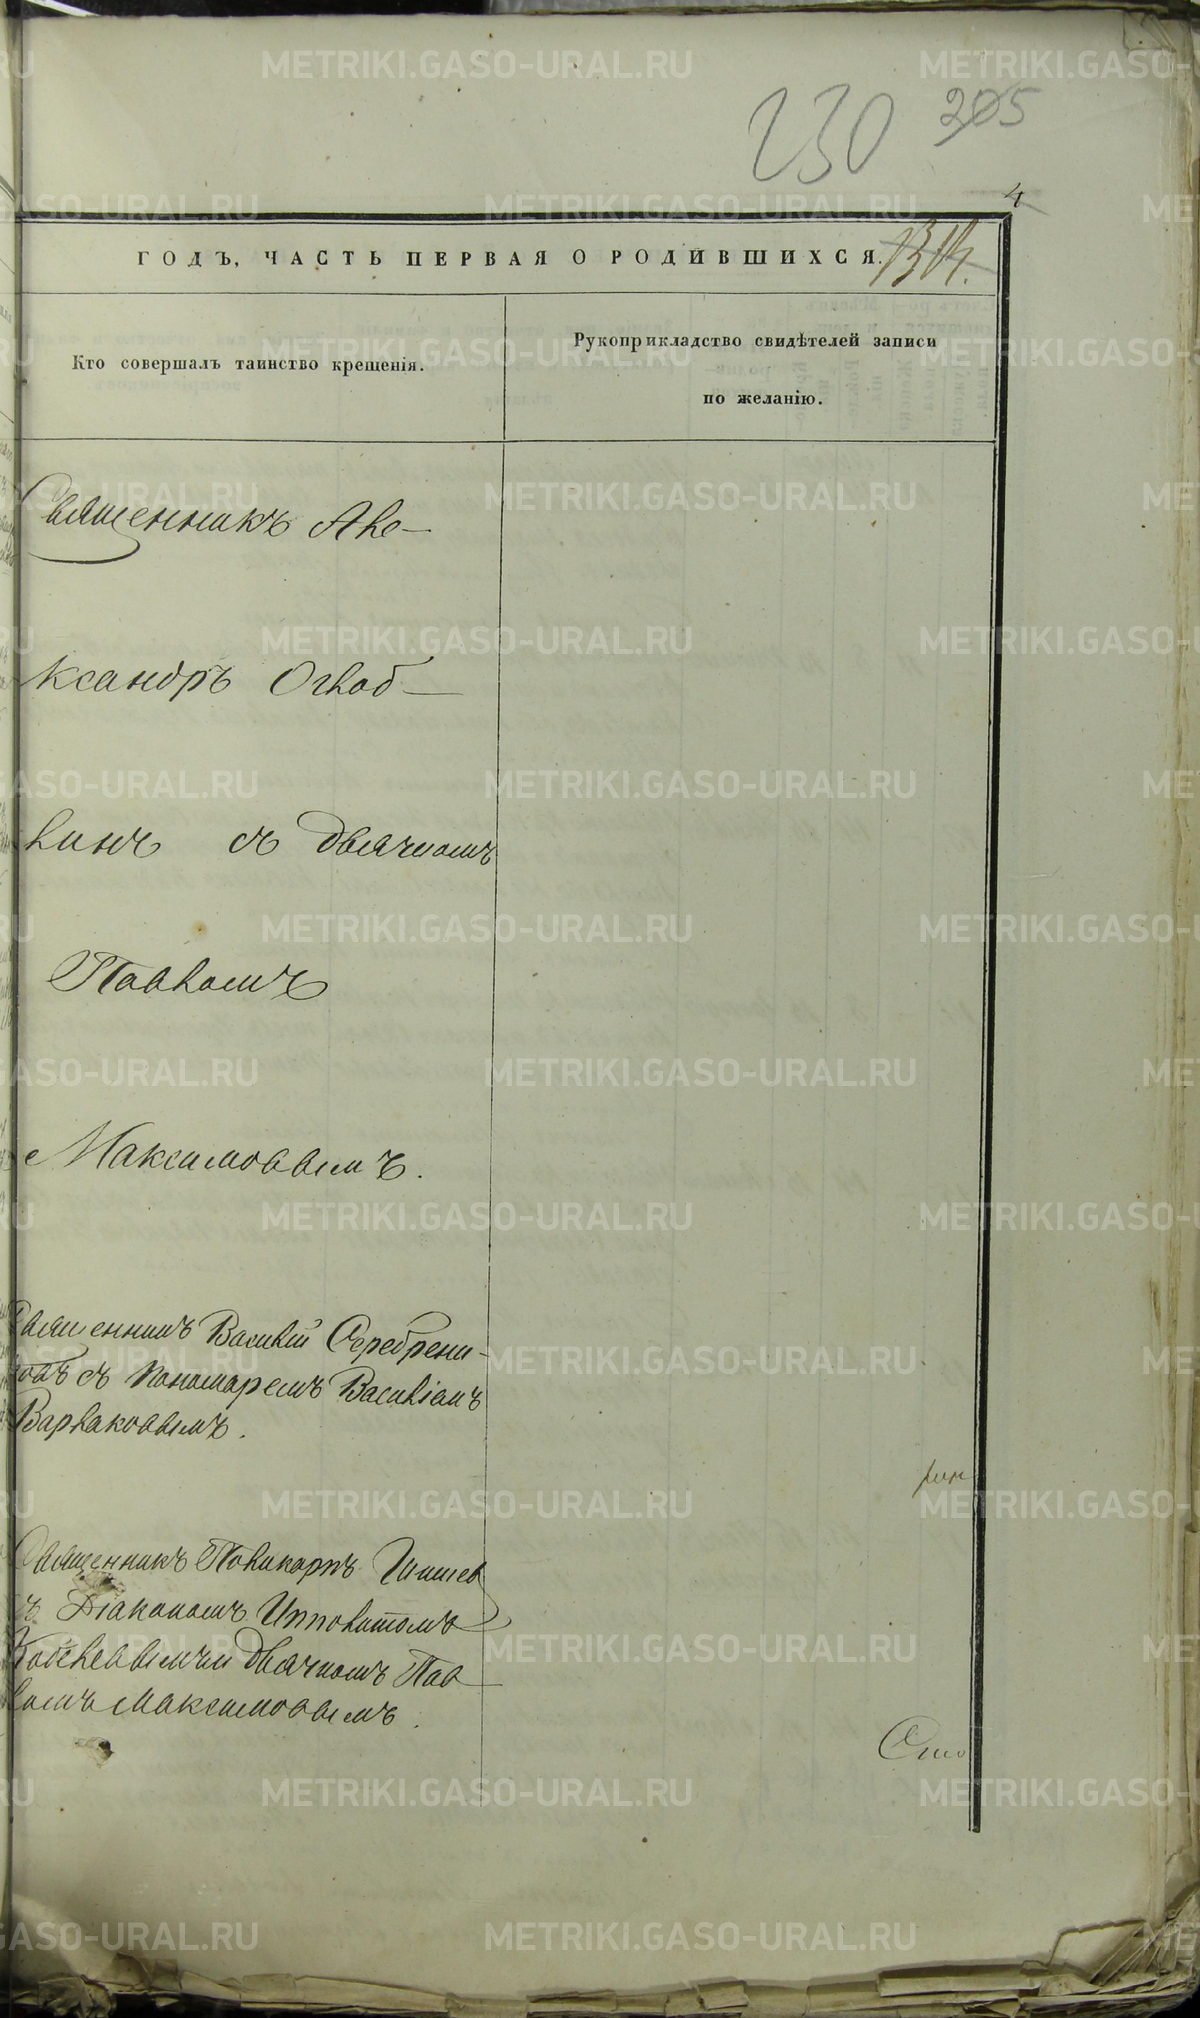 230 205
4
ГОДЪ, ЧАСТЬ ПЕРВАЯ О РОДИВШИХСЯ. 1314.
Кто совершалъ таинство крещенія.
Рукоприкладство свидѣтелей записи
по желанію.
Священникъ Але-
ксандръ Оглоб-
линъ съ дьячкомъ
Павломъ
Максимовымъ.
Священникъ Василій Серебрени-
ковъ съ пономаремъ Василіемъ
Варлаковымъ.
Священникъ Поликарпъ
съ Діакономъ Ипполитомъ
дьячкомъ Пав
ломъ Максимовымъ.
METRIKI.GASO-URAL.RU